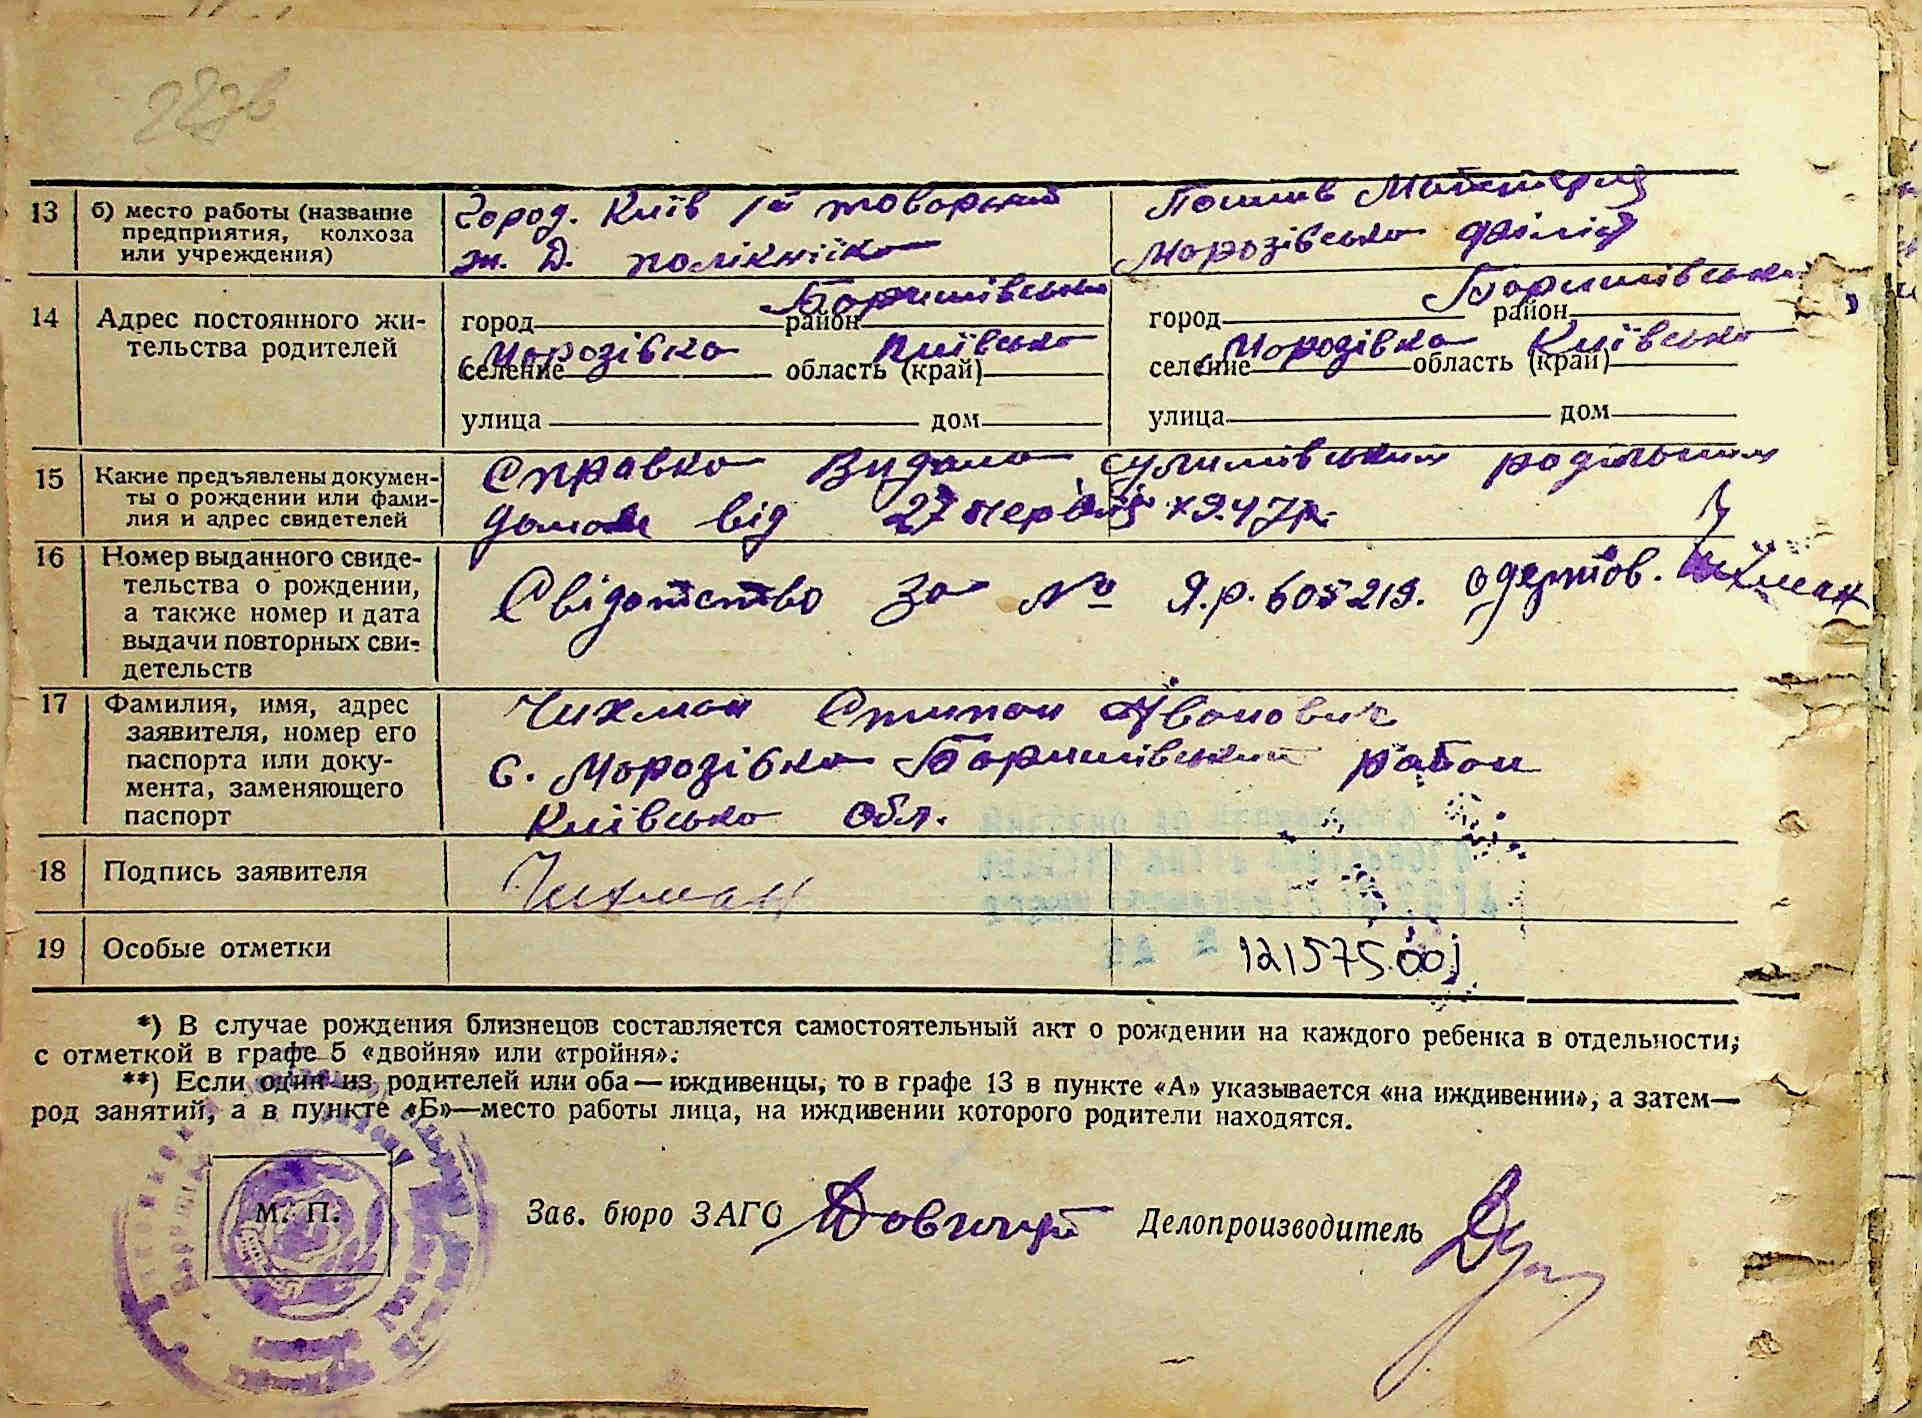 13 б) место работы (название предприятия, колхоза или учреждения)
Город. Київ 1й товарний
ж. Д. поліклініка
Пошив Майстерня
Морозівська філія
14 Адрес постоянного жи-
тельства родителей
город район Баришівська
селение с Морозівка область (край) Київська
улица дом
город район Баришівська
селение с Морозівка область (край) Київська
улица дом
15 Какие предъявлены докумен-
ты о рождении или фами-
лия и адрес свидетелей
Справка Видана Сулимівським родільним
домом від 27 червня 1947р.
16 Номер выданного свиде-
тельства о рождении,
а также номер и дата
выдачи повторных сви-
детельств
Свідотство за № Я.р. 605219. одержав. Чихман
17 Фамилия, имя, адрес
заявителя, номер его
паспорта или доку-
мента, заменяющего
паспорт
Чихман Степан Іванович
с. Морозівка Баришівський район
Київська обл.
18 Подпись заявителя
Чихман
19 Особые отметки
121575.00
*) В случае рождения близнецов составляется самостоятельный акт о рождении на каждого ребенка в отдельности,
с отметкой в графе 5 «двойня» или «тройня».
**) Если один из родителей или оба — иждивенцы, то в графе 13 в пункте «А» указывается «на иждивении», а затем —
род занятий, а в пункте «Б» — место работы лица, на иждивении которого родители находятся.
М. П.
Зав. бюро ЗАГС Делопроизводитель